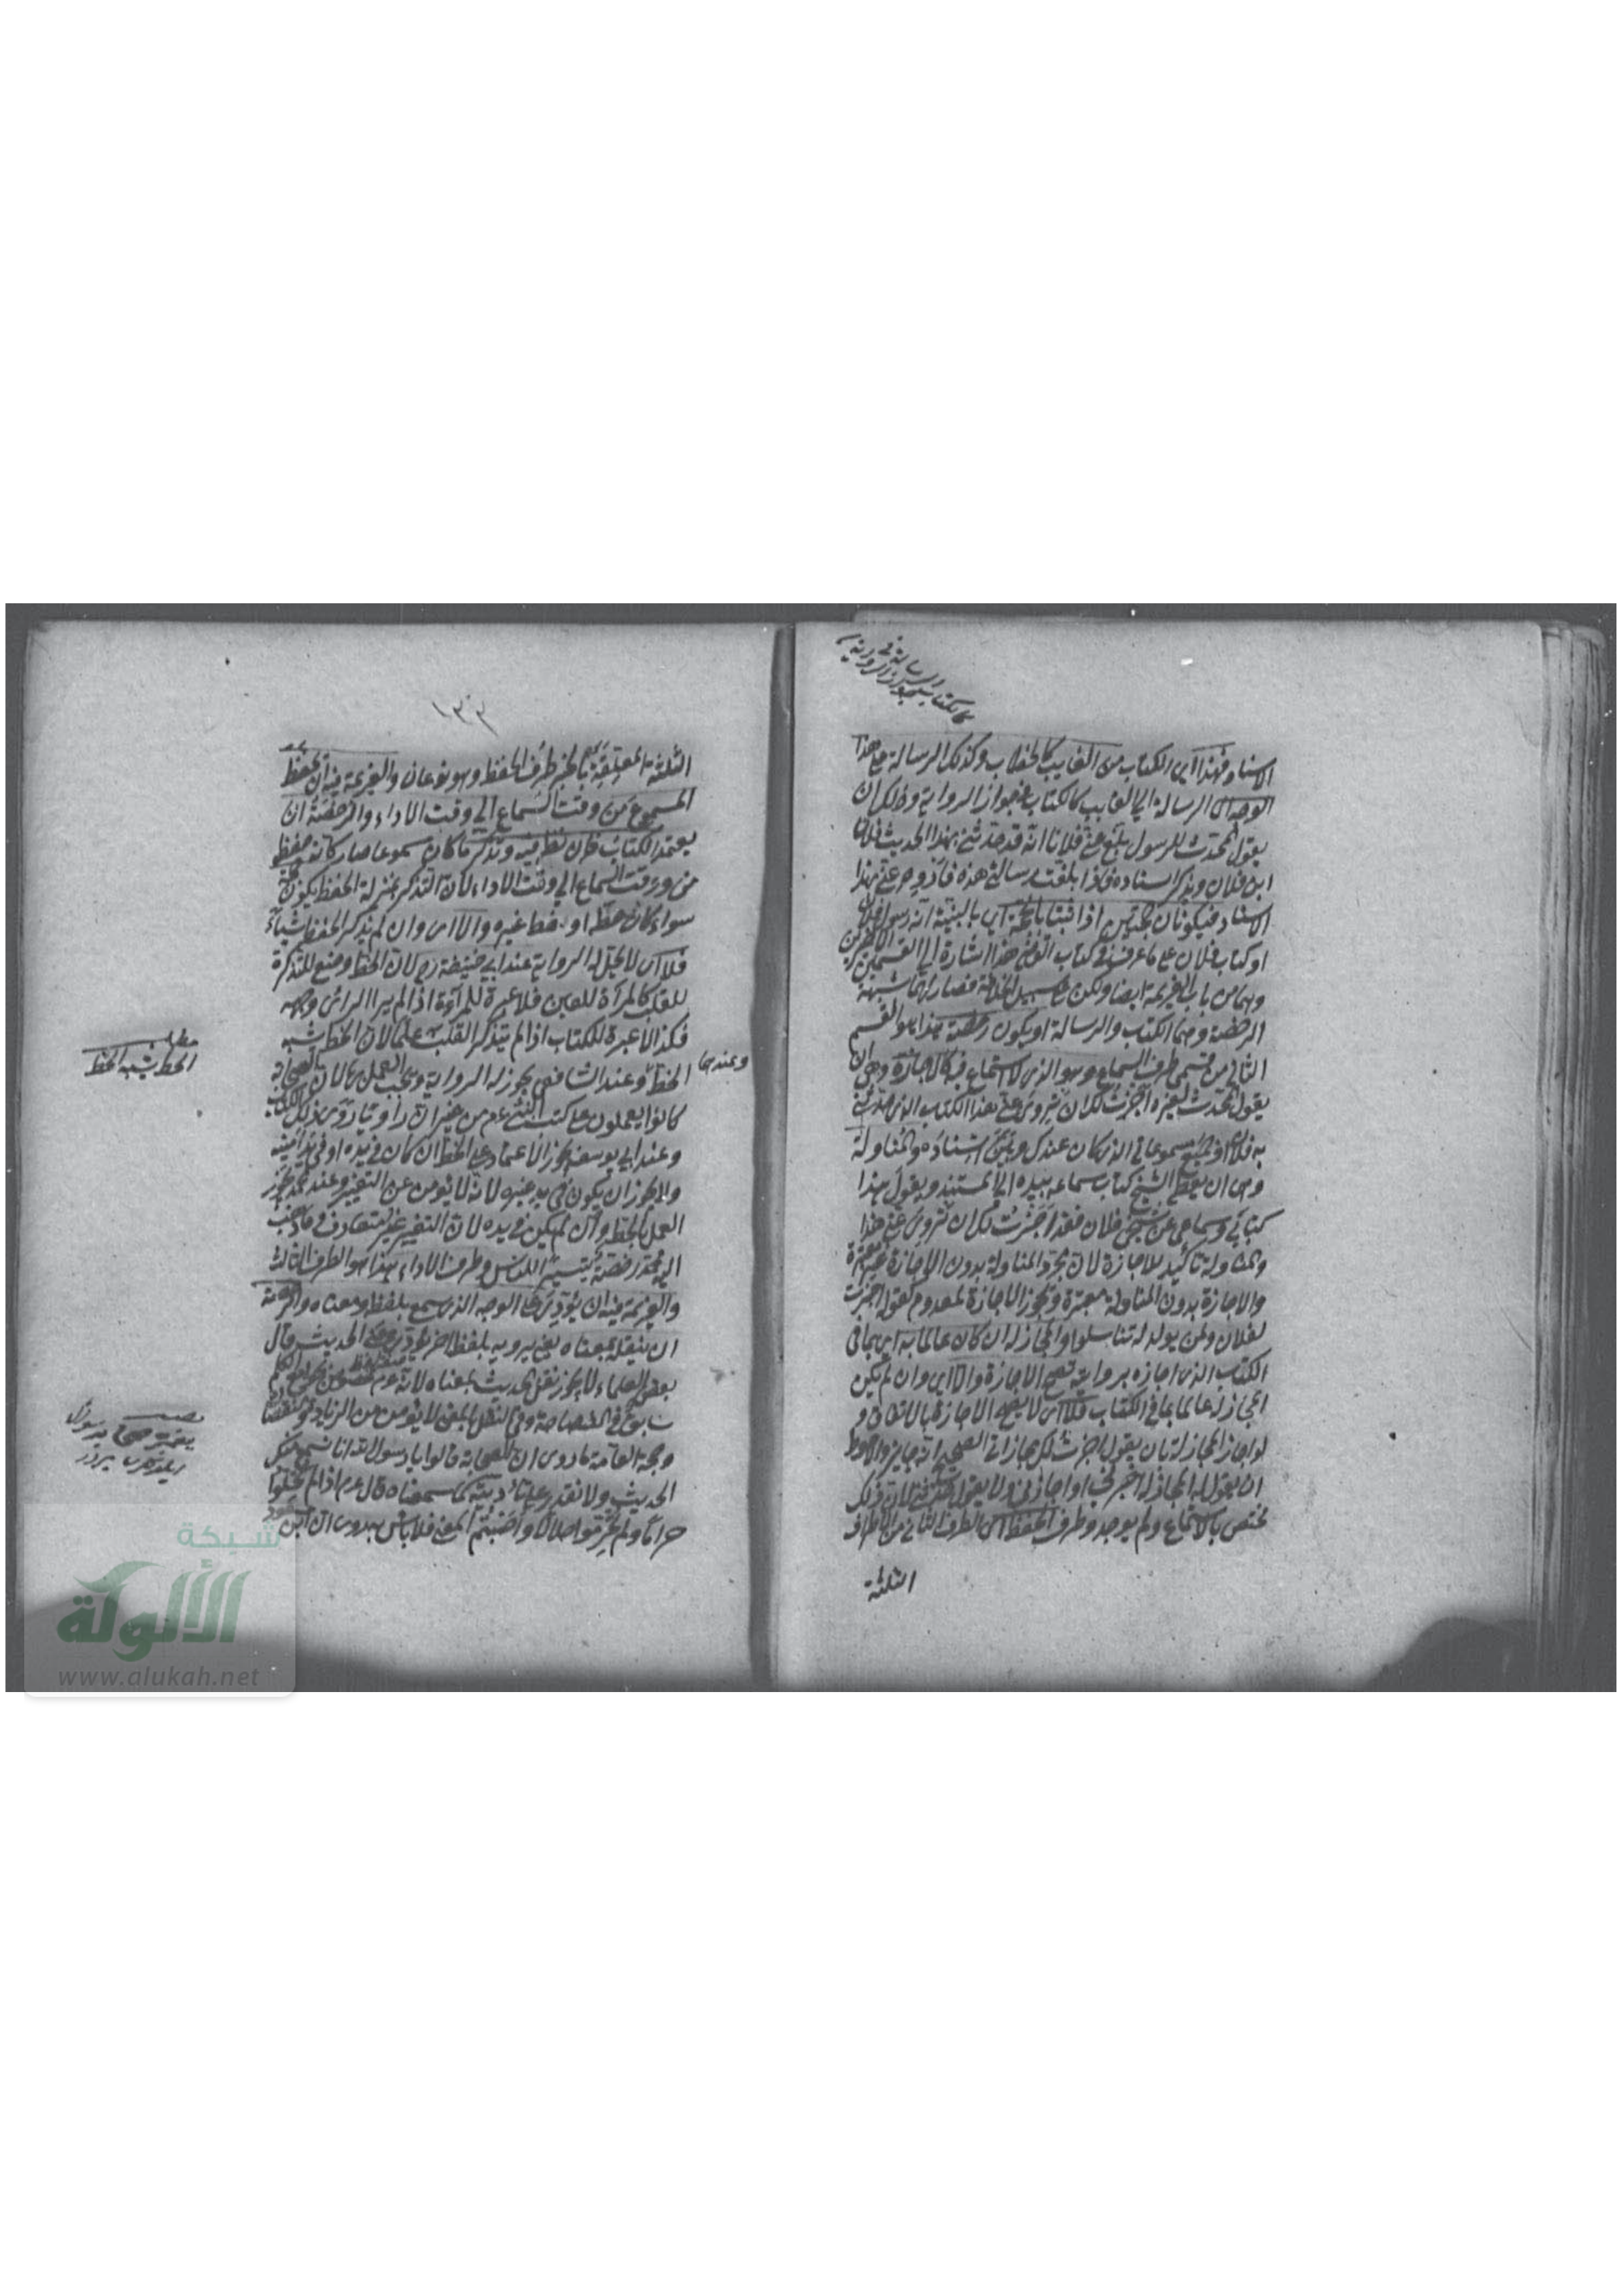 الاسناد فهذا اى الكتاب من الغايب كالخطاب وكذلك الرسالة على هذا
الوجه اى الرسالة الى الغايب كالكتاب في جواز الرواية وذلك ان
يقول المحدث للرسول بلغ عني فلانا انه قد حدثني بهذا الحديث فلان
ابن فلان ويذكر اسناده فاذا بلغت رسالتي هذه فاروه عني بهذا
الاسناد فيكونان حجتين اذا ثبتا بالحجة اى بالبينة انه رسول فلان
او كتاب فلان على ما عرف في كتاب القاضي هذا اشارة الى القسمين الاخيرين
وهما من باب العزيمة ايضا ولكن على سبيل الخلافة فصار لهما شبهة
الرخصة وهما الكتاب والرسالة او يكون رخصة هذا هو القسم
الثاني من قسمي طرف السماع وهو الذى لا استماع فيه كالاجازة وهى ان
يقول المحدث لغيره اجزت لك ان تروى عني هذا الكتاب الذى حدثني
به فلان او جميع مسموعاتي الذى كان عندك وبين اسناده والمناولة
وهى ان يعطى الشيخ كتاب سماعه بيده الى المستفيد ويقول هذا
كتابي وسماعي عن شيخي فلان فقد اجزت لك ان تروى عني هذا
والمناولة تاكيد للاجازة لان مجرد المناولة بدون الاجازة غير معتبرة
والاجازة بدون المناولة معتبرة وتجوز الاجازة لمعدوم كقوله اجزت
لفلان ولمن يولد له تناسلوا والمجاز له ان كان عالما به اى بما في
الكتاب الذى اجازه بروايته تصح الاجازة والا اى وان لم يكن
المجاز له عالما بما في الكتاب فلا اى لا يصح الاجازة بالاتفاق و
لو اجاز المجاز له بان يقول اجزت لك مجازاتي الصحيح انه جايز والاحوط
ان يقول المجاز له اخبرني او اجازني ولا يقول حدثني لان ذلك
مختص بالاستماع ولم يوجد وطرف الحفظ اى الطرف الثاني من الاطراف
الثلثة
١٣٣
الثلثة المتعلقة بالخبر طرف الحفظ وهو نوعان والعزيمة فيه ان يحفظ
المسموع من وقت السماع الى وقت الاداء والرخصة ان
يعتمد الكتاب فان نظر فيه وتذكر ما كان مسموعا صار كانه حفظ
من وقت السماع الى وقت الاداء لان التذكر بمنزلة الحفظ يكون حجة
سواء كان خطه او خط غيره والا اى وان لم يذكر الخط شيئا
فلا اى لا يحل له الرواية عند ابي حنيفة رح لان الخط وضع للتذكرة
للقلب كالمرآة للعين فلا عبرة للمرآة اذا لم ير الرائى وجهه
فكذا لا عبرة للكتاب اذا لم يتذكر القلب علما لان الخط يشبه
الخط وعند الشافعى يجوز له الرواية ويجب العمل بها لان الصحابة
وعندهما
كانوا يعملون على كتب النبي عم من غير ان راو يا روى ذلك الكتاب
وعند ابي يوسف يجوز الاعتماد على الخط ان كان في يده او في يد امينه
ولا يجوز ان يكون في يد غيره لانه لا يؤمن عن التغيير وعند محمد يجوز
العمل بالخط وان لم يكن في يده لان التغيير غير متعارف فما ذهب
اليه محمد رخصة تيسيرا للناس وطرف الاداء هذا هو الطرف الثالث
والعزيمة فيه ان يؤدى على الوجه الذى سمع بلفظه ومعناه والرخصة
ان ينقله بمعناه يعني يرويه بلفظ اخر يؤدى معنى الحديث قال
بعض العلماء لا يجوز نقل الحديث بمعناه لانه عم مخصوص بجوامع الكلم
سابق في الفصاحة وفي النقل بالمعنى لا يؤمن من الزيادة والنقصان
وحجة العامة ما روى ان الصحابة قالوا يا رسول الله انا نسمع منك
الحديث ولا نقدر على تاديته كما سمعناه قال عم اذا لم تحلوا
حراما ولم تحرموا حلالا واصبتم المعنى فلا باس به روى ان ابن مسعود
مطلب
الخط يشبه الخط
شبكة
الألوكة
www.alukah.net